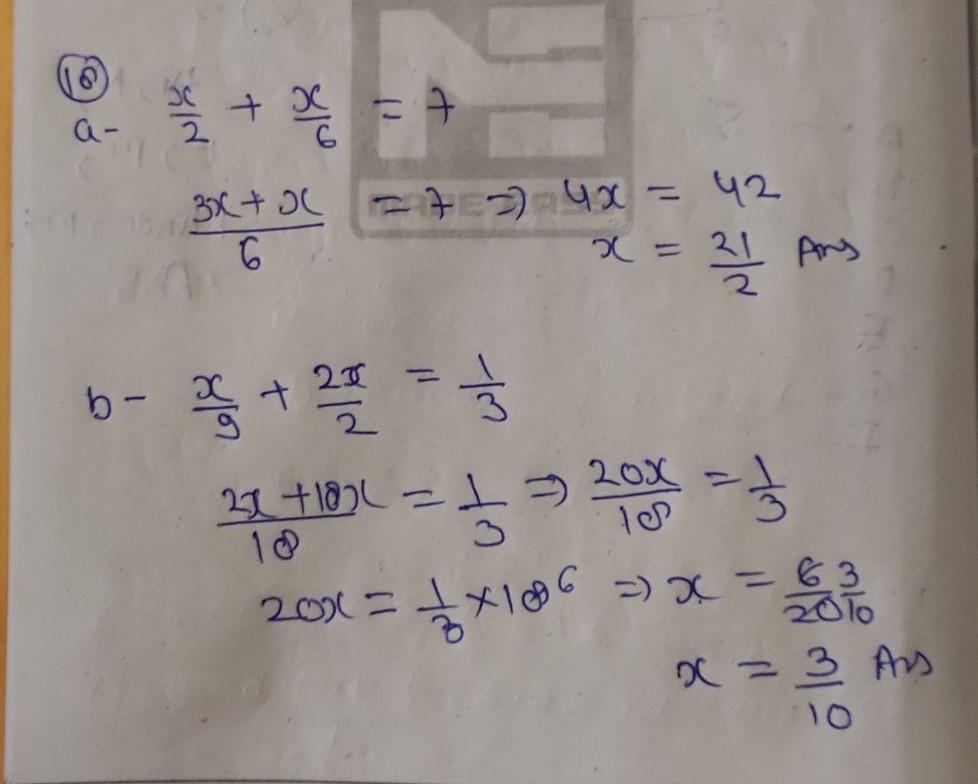 (10)
a- x/2 + x/6 = 7
(3x + x)/6 = 7 ⇒ 4x = 42
x = 21/2 Ans
b- x/9 + 2x/2 = 1/3
(2x + 18x)/18 = 1/3 ⇒ 20x/18 = 1/3
20x = 1/3 × 18 6 ⇒ x = 6/20 3/10
x = 3/10 Ans